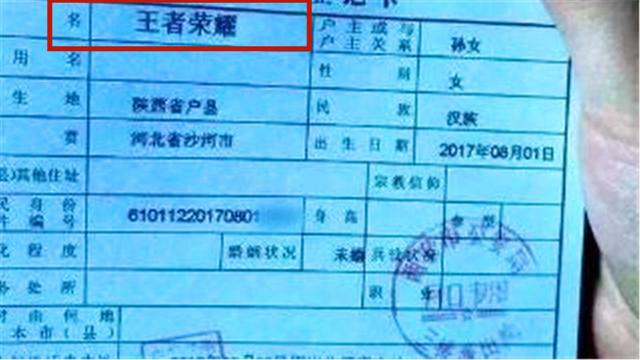 名 王者荣耀 户主或与 孙女
户主关系
用名 性别 女
生地 陕西省户县 民族 汉族
贯 河北省沙河市 出生日期 2017年08月01日
县)其他住址 宗教信仰
民身份 61011220170801 身高 血型
件编号
化程度 婚姻状况 未婚 兵役状况
务处所 职业
时由何地
本市(县)